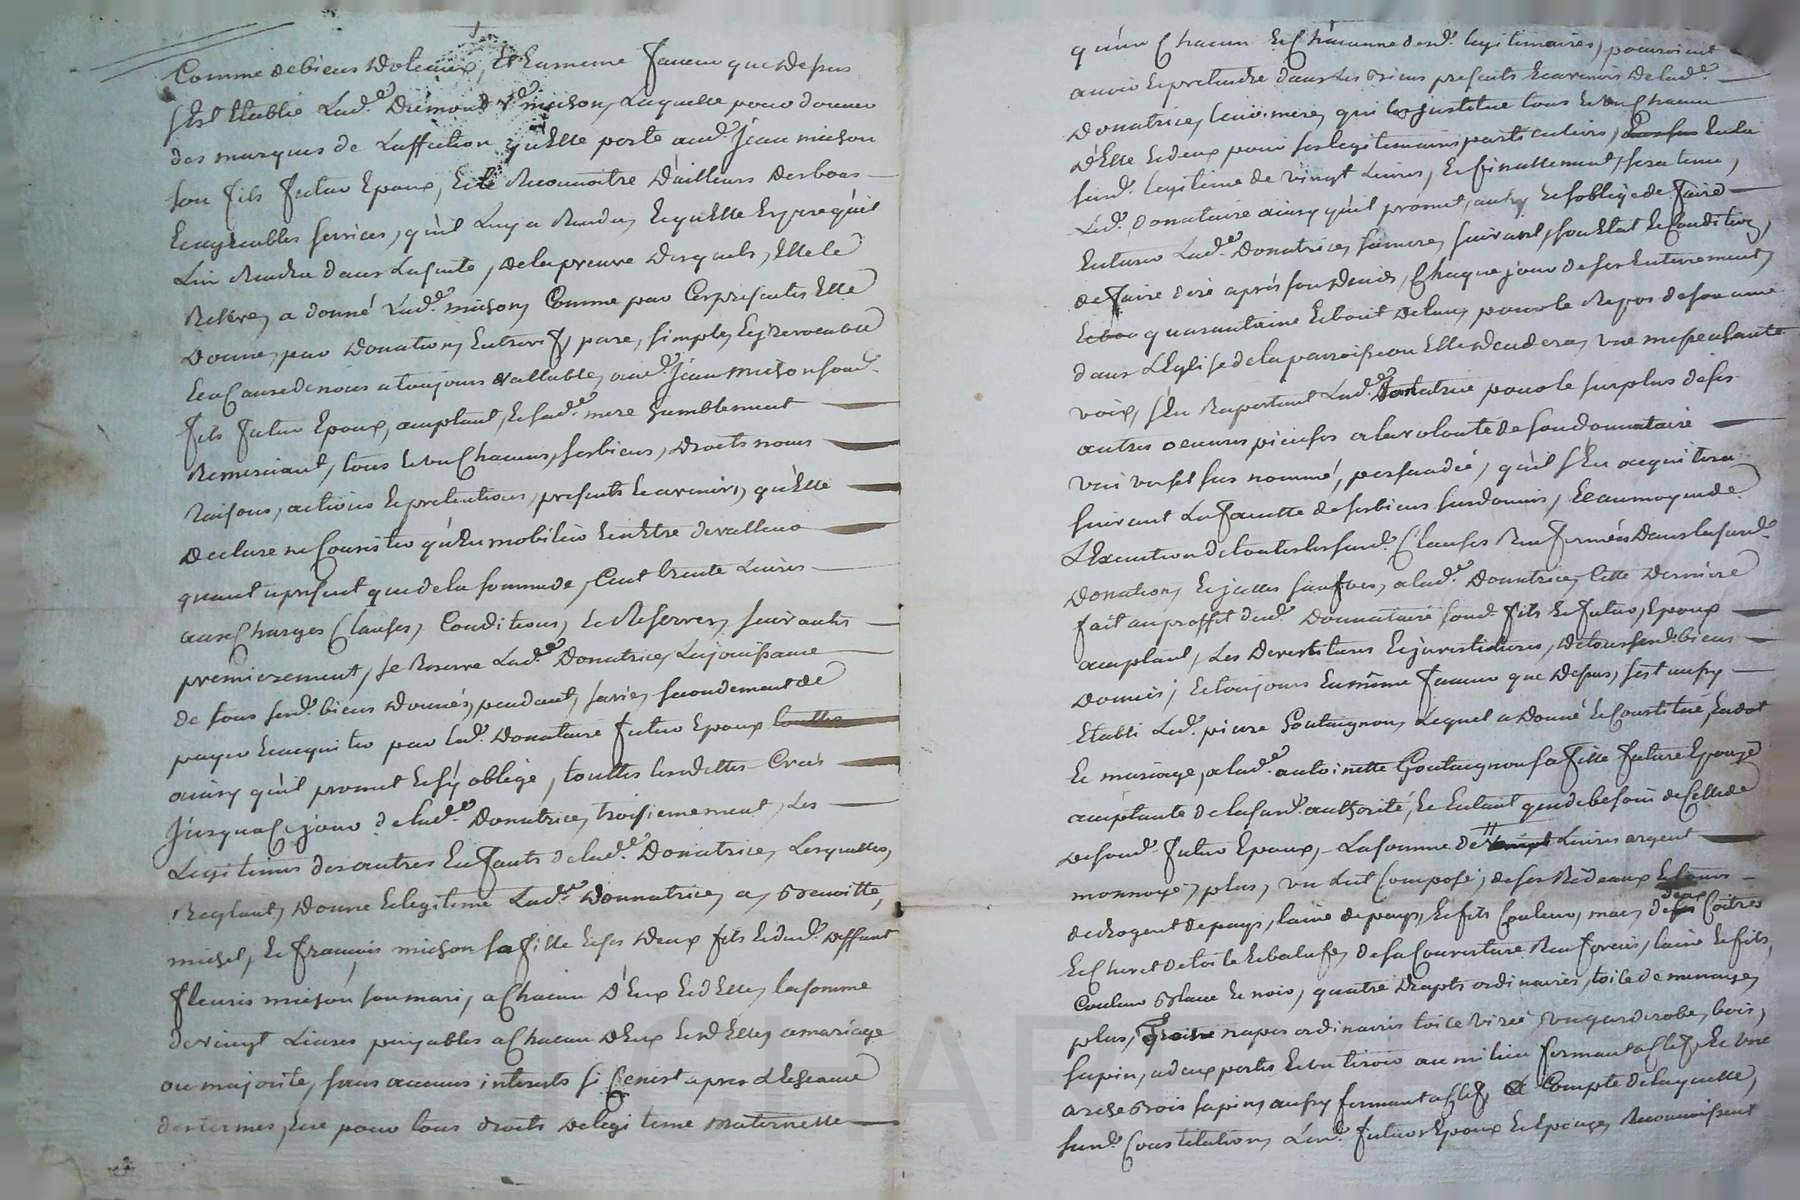 Comme de biens dotaux, et En meme faveur que Depuis
s'Est Etablie Lad.e Dumond v.e mizon, Laquelle pour donner
des marques de Laffection qu'Elle porte aud. Jean mizon
son fils futur Epoux, Et le Reconnoitre D'ailleurs Des bons
Et agreables services, qu'il Luy a Rendus, Et qu'Elle Espere qu'il
Lui Rendra dans La suite, de la preuve Desquels, Elle le
Releve, a donné Lad.e mizon, Comme par Ces presentes Elle
Donne, par Donation, Entrevif, pure, simple, Et jrrevocable
Et a Cause de nous a toujours vallable, aud. Jean mizon sond.
fils futur Epoux, acceptant, Et sad.e mere humblement
Remerciant, tous Et un Chacuns, ses biens, Droits noms
Raisons, actions Et pretentions, presents Et avenirs, qu'Elle
Declare ne Consister qu'En mobilier Et n'Etre de valleur
quant a present que de la somme de, Cent trente Livres
aux Charges Clauses, Conditions, Et Reserves, suivantes
premierement, se Reserve Lad.e Donatrice, La jouissance
de tous sesd. biens Donnés, pendant, sa vie, secondement de
payer Et acquiter par Led. Donataire futur Epoux
ainsy qu'il promet Et s'y oblige, touttes les dettes Créés
Jusqu'a Ce jour de Lad.e Donatrice, troisiemement, Les
Legitimes des autres Enfants de Lad.e Donatrice, Lesquelles,
Reglant, Donne Et legitime Lad.e Donnatrice, a, Benoitte,
michel, Et françois mizon sa fille Et ses Deux fils Et dud. Deffunt
fleuris mizon son mari, a Chacun D'Eux Et d'Elle, la somme
de vingt Livres payables a Chacun D'Eux Et d'Elle, a mariage
ou majorité, sans aucuns interets si Ce n'est apres L'Echeance
des termes, Et Ce pour tous droits de legitime Maternelle
qu'un Chacun Et Chacunne desd. legitimaires, pourroient
avoir Et pretendre dans Les biens presents Et avenir de Lad.e
Donatrice, leur mere, qui les Jnstitue tous Et un Chacun
D'Elle Et d'eux pour ses legitimaires particuliers, En la
susd. legitime de vingt Livres, Et finallement, sera tenu,
Led. Donataire ainsy qu'il promet, Et s'oblige de faire
Enterrer Lad.e Donatrice, sa mere, suivant, son Etat Et Condition,
de faire dire après son Deuies, Chaque jour de ses Enterrement,
quarantaine Et bout De l'an, pour le Repos de son ame
dans L'Eglise de la parroisse ou Elle Decedera, une messe a haute
voix, s'En Raportant Lad.e Donatrice pour le surplus de ses
autres oeuvres pieuses a la volonté de son donnataire
persuadée, qu'il s'En acquitera
suivant La facultte de ses biens sus donnés, Et au moyen de
L'Execution de toutes les susd. Clauses Renfermées Dans la susd.
Donation, Et jcelles sauf, a Lad.e Donnatrice, Cette Derniere
fait au proffit dud. Donnataire sond. fils Et futur, Epoux
acceptant, Les Devestitures Et jnvestitures, de tous sesd. biens
Donnés; Et toujours En même faveur que Depuis, s'est aussy
Etabli Led. pierre Goutaignon, Lequel a Donné Et Constitué, En dot
Et mariage, a Lad.e antoinette Goutaignon sa fille future Epouze
acceptante de la susd. authorité, Et En tant que de besoin de Celle de
de sond. futur Epoux, La somme de Livres argent
monnoyé, plus, un Lit Composé, de ses Rideaux Et tours
de drogent de pays, laine de pays, Et fils Couleur, mary, deux Coitres
Et Chevet de toile Et balufe, de sa Couverture Renforcée, laine Et fils,
Couleur Blanc Et noir, quatre Draps ordinaires, toile de menage,
plus, Troise napes ordinaires toile virée, un garderobe, bois,
sapin, a deux portes Et un tiroir au milieu fermant a Clef, Et une
arche bois sapin, aussy fermant a Clef, a Compte de laquelle,
susd. Constitution, Lesd. futurs Epoux Et Epouze, Reconnoissent